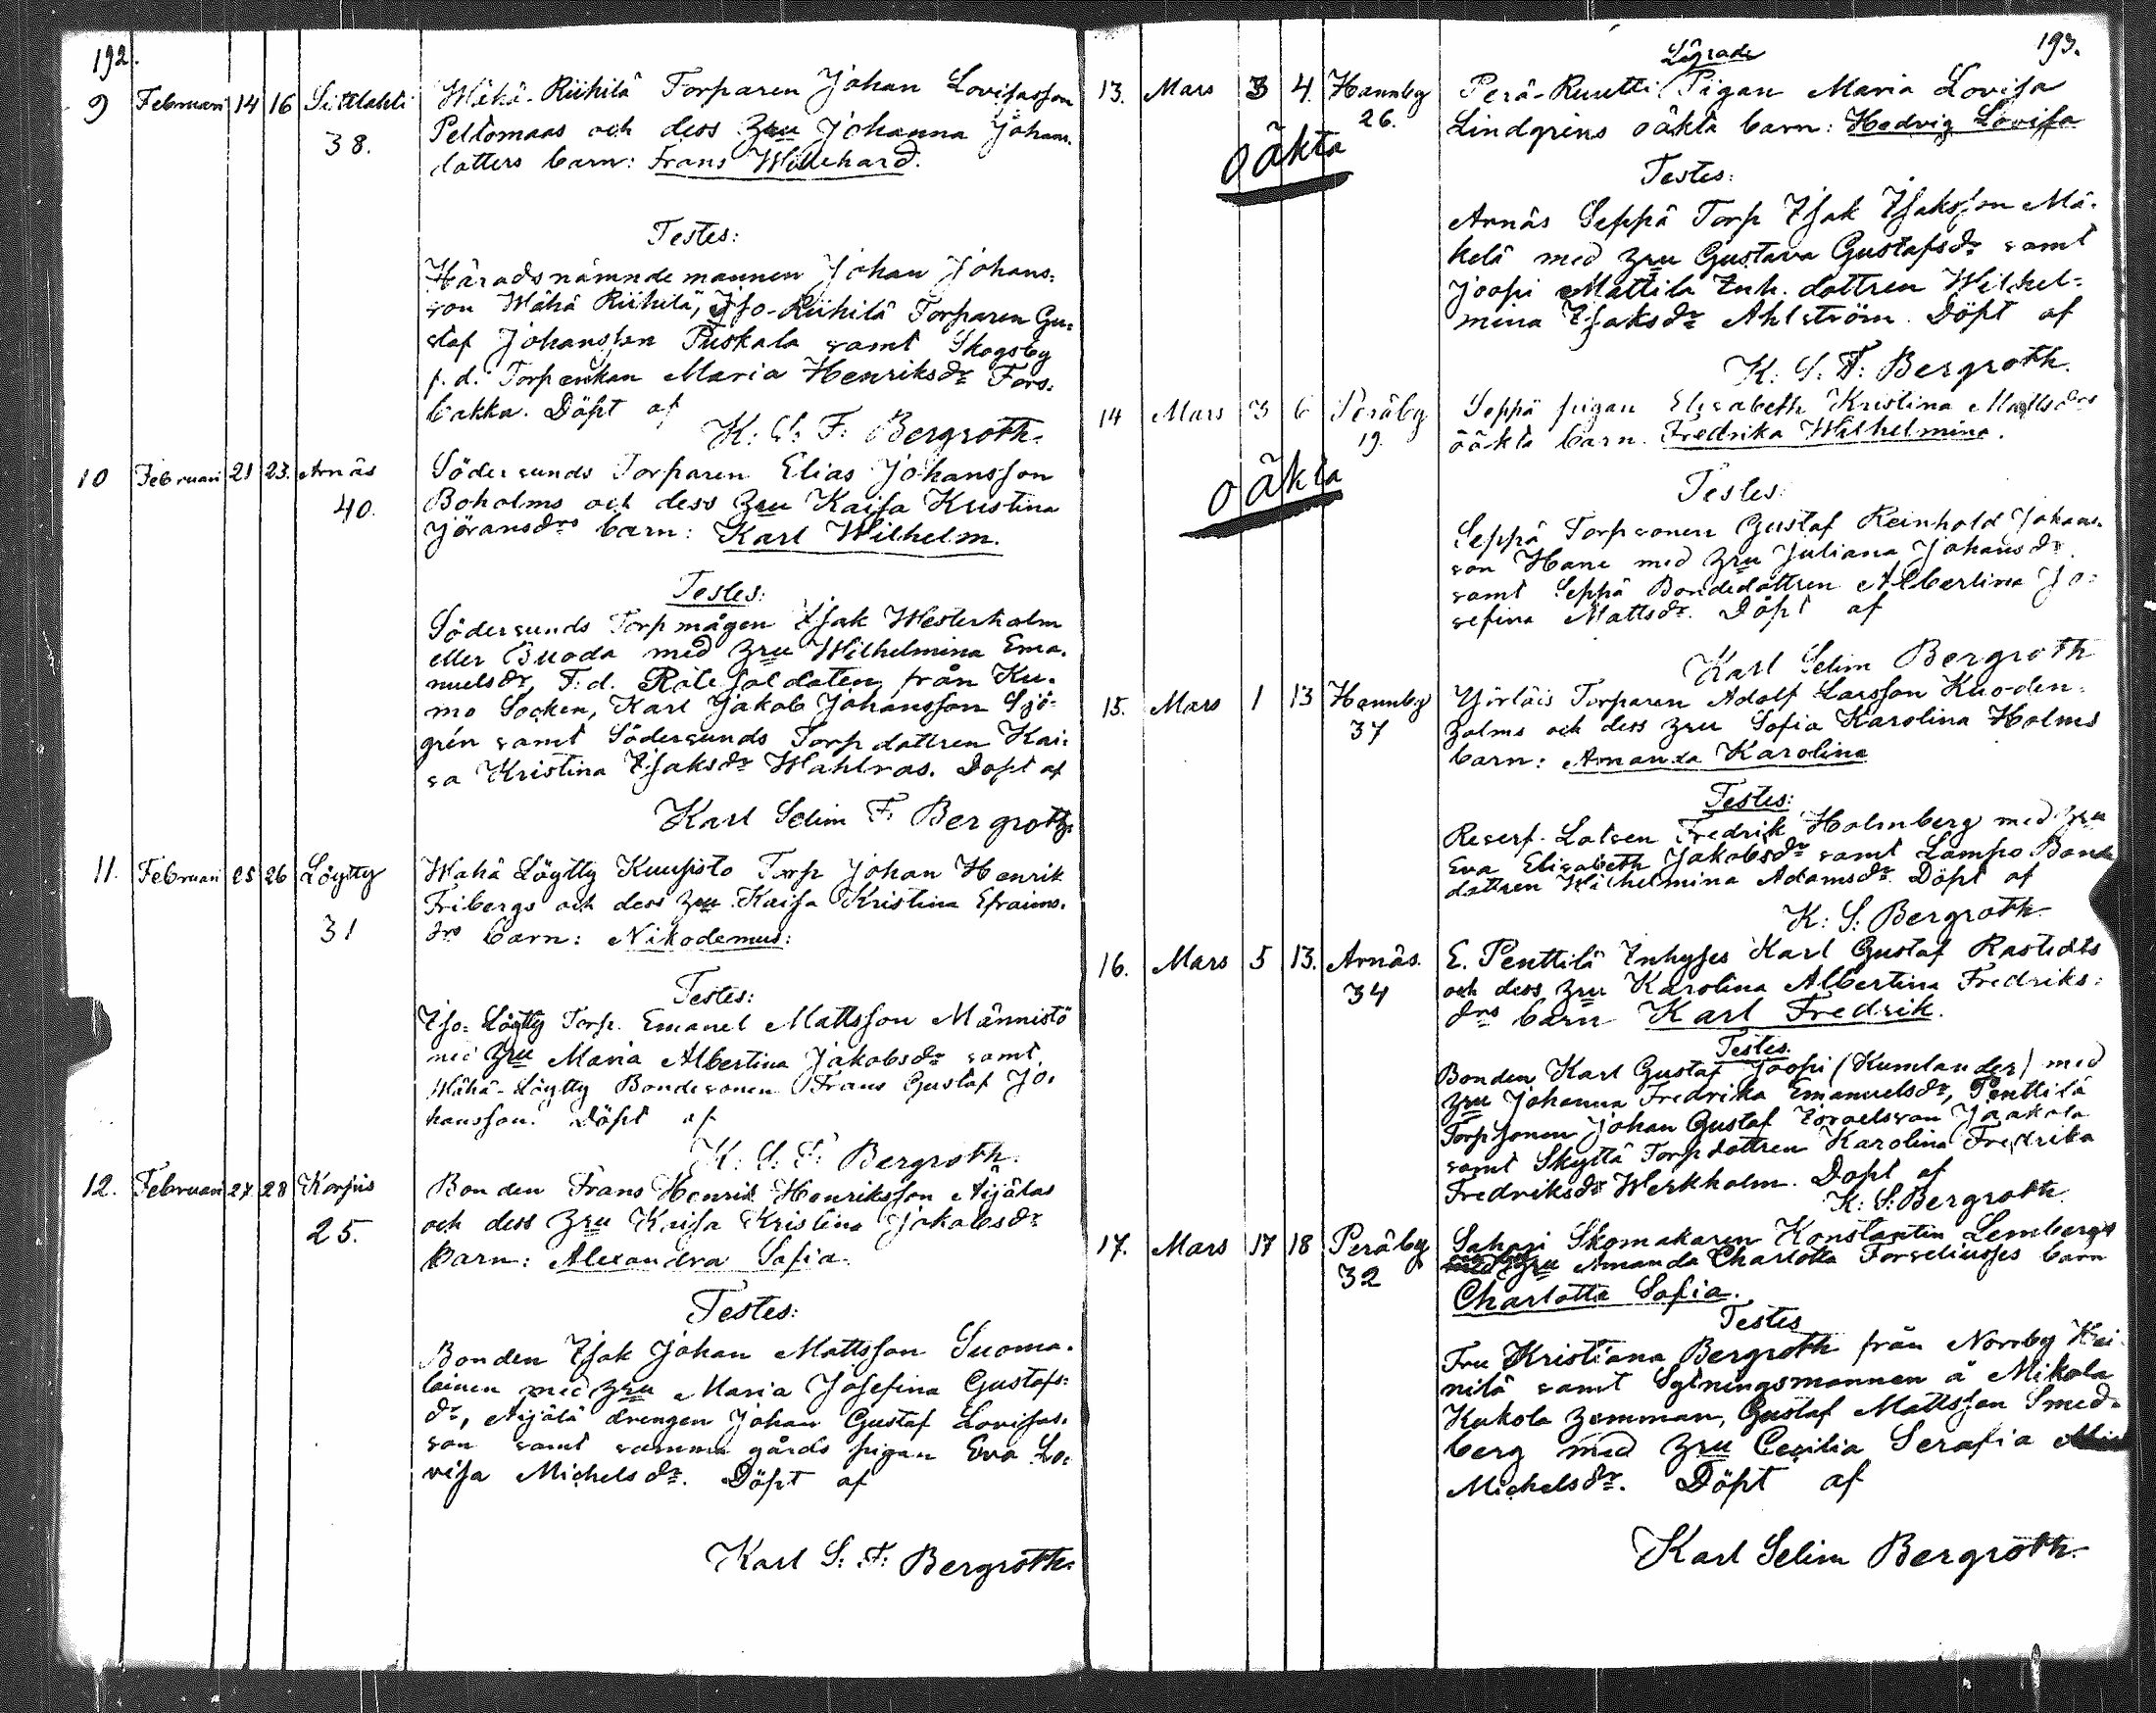 192.
9 Februari 14 16 Sittlahti Wähä-Riihilä Torparen Johan Lovisasson
38. Peltomaas och dess Hru Johanna Johans-
dotters barn: Frans Willehard.
Testes:
Häradsnämndemannen Johan Johans-
son Wähä Riihilä, Iso-Riihilä Torparen Gu-
staf Johansson Puskala samt Skogsby
f.d. Torpenkan Maria Henriksdr Fors-
backa. Döpt af
K: S: F: Bergroth.
10 Februari 21 23. Arnäs Södersunds Torparen Elias Johansson
40. Boholms och dess Hru Kaisa Kristina
Jöransdrs barn: Karl Wilhelm.
Testes:
Södersunds Torpmågen Isak Westerholm
eller Buoda med Hru Wilhelmina Ema-
nuelsdr, F.d. Rote soldaten från Ku-
mo Socken, Karl Jakob Johansson Sjö-
grén samt Södersunds Torpdottren Kai-
sa Kristina Isaksdr Wahlroos. Döpt af
Karl Selim F. Bergroth.
11. Februari 25 26 Löytty Wähä Löytty Kuusisto Torp Johan Henrik
31 Fribergs och dess Hru Kaisa Kristina Efraims-
drs barn: Nikodemus:
Testes:
Iso-Löytty Torp. Emanel Mattsson Männistö
med Hru Maria Albertina Jakobsdr samt
Wähä-Löytty Bondesonen Frans Gustaf Jo-
hansson. Döpt af
K: S: F: Bergroth.
12. Februari 27 28 Korpis Bonden Frans Henrik Henriksson Äijälas
25. och dess Hru Kaisa Kristina Jakobsdr
barn: Alexandra Sofia.
Testes:
Bonden Isak Johan Mattsson Suoma-
lainen med Hru Maria Josefina Gustafs-
dr, Äijälä drengen Johan Gustaf Lovisas-
son samt samma gårds pigan Eva Lo-
visa Michelsdr. Döpt af
Karl S: F: Bergroth.
193.
Lägrade
13. Mars 3 4. Hannby Perä-Ruutti Pigan Maria Lovisa
26. Lindgrens oäkta barn: Hedvig Lovisa
oäkta
Testes:
Arnäs Seppä Torp Isak Isaksson Mä-
kelä med Hru Gustava Gustafsdr samt
Joopi Mattila Inh. dottren Wilhel-
mina Isaksdr Ahlström. Döpt af
K: S: F: Bergroth.
14 Mars 3 6 Peräby Seppä pigan Elisabeth Kristina Mattsdrs
19. oäkta barn. Fredrika Wilhelmina.
oäkta
Testes:
Seppä Torpsonen Gustaf Reinhold Johans-
son Hane med Hru Juliana Johansdr
samt Seppä Bondedottren Albertina Jo-
sefina Mattsdr. Döpt af
Karl Selim Bergroth
15. Mars 1 13 Hannby Yörläis Torparen Adolf Larsson Knoden-
37 holms och dess Hru Sofia Karolina Holms
barn: Amanda Karolina
Testes:
Reserf. Lotsen Fredrik Holmberg med Hru
Eva Elisabeth Jakobsdr samt Lampo Bonde
dottren Wilhelmina Adamsdr. Döpt af
K: S: Bergroth.
16. Mars 5 13. Arnäs. E. Penttilä Inhyses Karl Gustaf Rastedts
34 och dess Hru Karolina Albertina Fredriks-
drs barn Karl Fredrik.
Testes.
Bonden Karl Gustaf Joopi (Kumlander) med
Hru Johanna Fredrika Emanuelsdr, Penttilä
Torpsonen Johan Gustaf Israelsson Jaakola
samt Skyttä Torpdottren Karolina Fredrika
Fredriksdr Werkholm. Döpt af
K: S: Bergroth.
17. Mars 17 18 Peräby Sahari Skomakaren Konstantin Lembergs
32 och dess Hru Amanda Charlotta Forseliusses barn
Charlotta Sofia.
Testes
Fru Kristiana Bergroth från Norrby Hei-
nilä samt Sytningsmannen å Mikola
Kukola hemman, Gustaf Mattsson Smed-
berg med Hru Cecilia Serafia
Michelsdr. Döpt af
Karl Selim Bergroth.